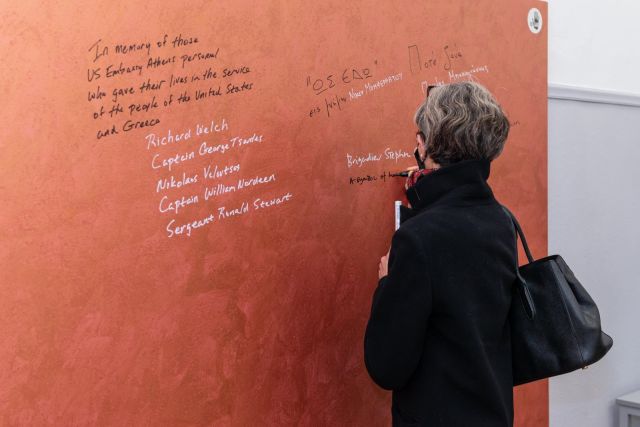 In memory of those
US Embassy Athens personal
who gave their lives in the service
of the people of the United States
and Greece
Richard Welch
Captain George Tsantes
Nikolaos Veloutsos
Captain William Nordeen
Sergeant Ronald Stewart
"ΩΣ ΕΔΩ"
εις μνήμην
Ποτέ ξανά
Brigadier Stephen
A symbol of